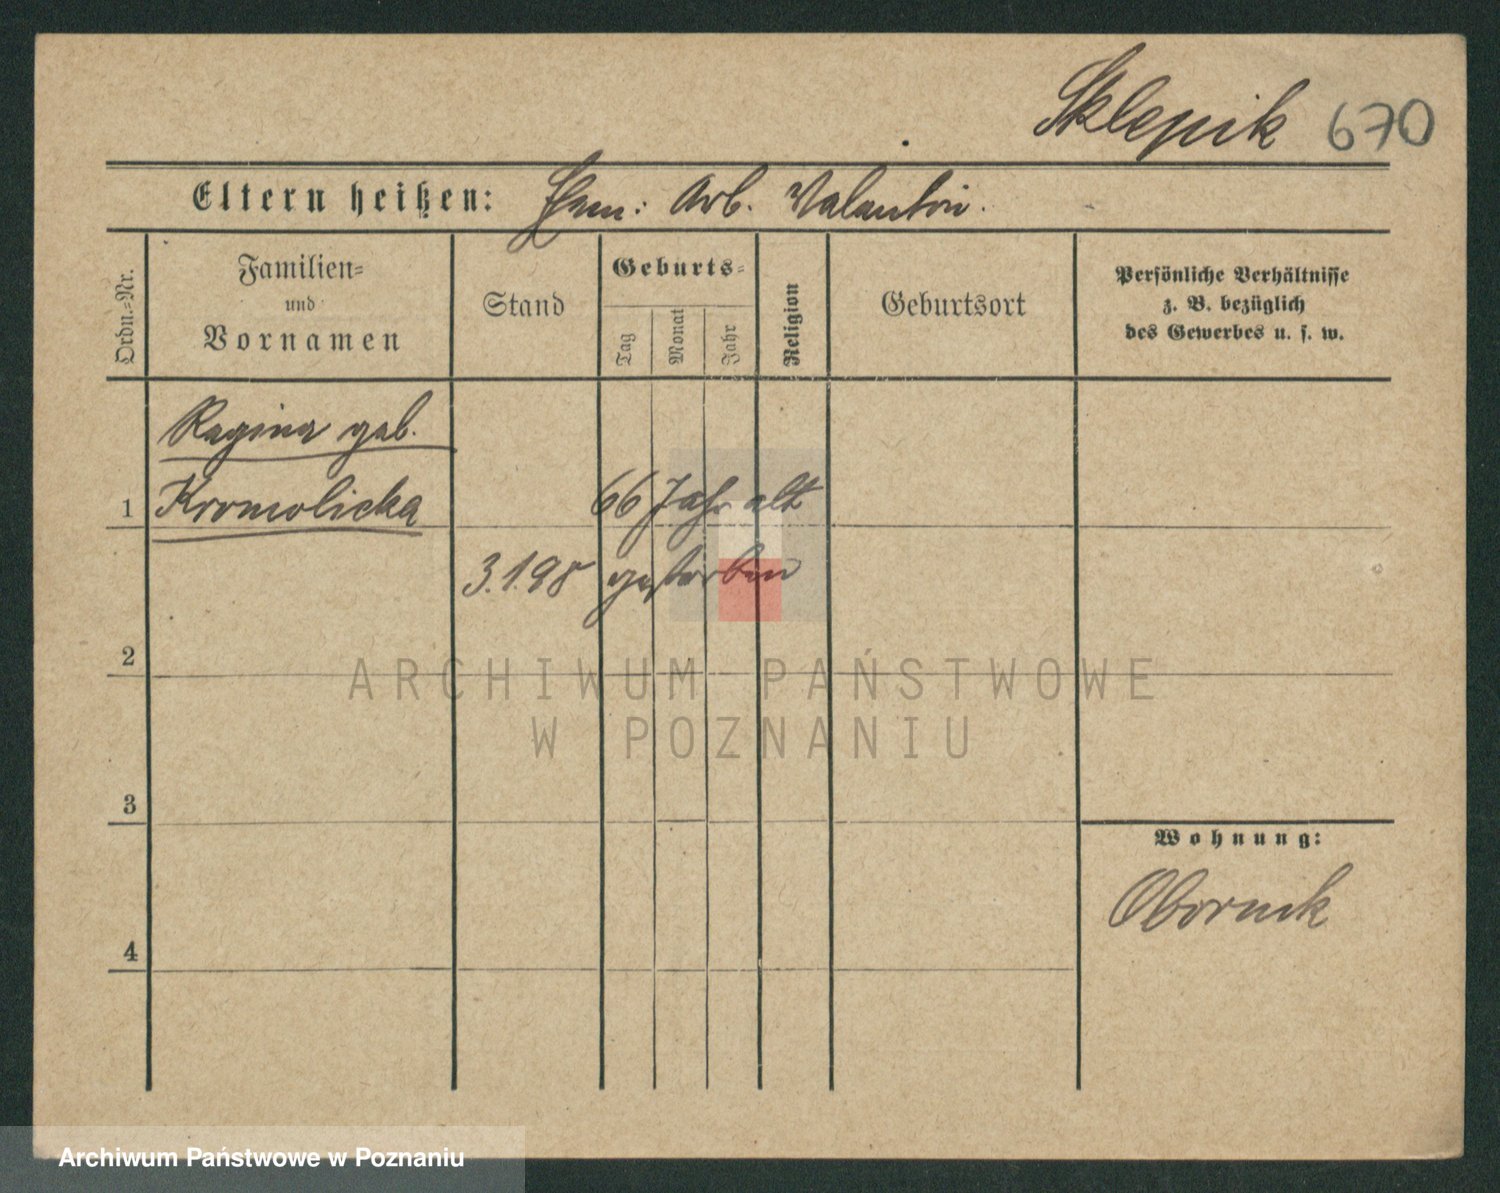 Sklepik 670
Eltern heißen: Ehem: Arb. Valentin.
Ordn.=Nr.
Familien=
und
Vornamen
Stand
Geburts=
Tag
Monat
Jahr
Religion
Geburtsort
Persönliche Verhältnisse
z. B. bezüglich
des Gewerbes u. s. w.
Regina geb.
1 Kromolicka 66 Jahr alt
3.1.98 gestorben
2
ARCHIWUM PAŃSTWOWE
W POZNANIU
3
Wohnung:
Obornik
4
Archiwum Państwowe w Poznaniu